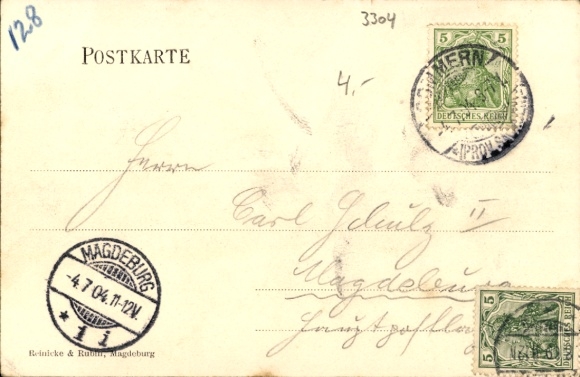 128
3304
POSTKARTE
4.-
5 5
DEUTSCHES REICH
GOMMERN
(PROV.
Herrn
Carl Schulz II
Magdeburg
MAGDEBURG
-4.7.04.11-12V.
* 1 i
5 5
DEUTSCHES REICH
Reinicke & Rubin, Magdeburg